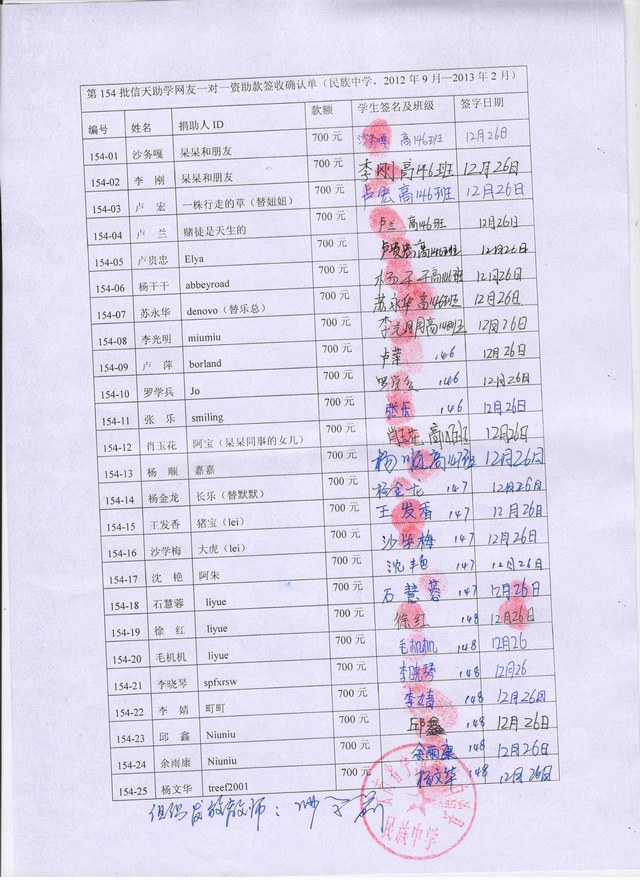 第154批信天助学网友一对一资助款签收确认单（民族中学，2012年9月—2013年2月）
编号 姓名 捐助人ID 款额 学生签名及班级 签字日期
154-01 沙务嘎 呆呆和朋友 700元 沙务嘎 高146班 12月26日
154-02 李 刚 呆呆和朋友 700元 李刚 高146班 12月26日
154-03 卢 宏 一株行走的草（替姐姐） 700元 卢宏 高146班 12月26日
154-04 卢 兰 赌徒是天生的 700元 卢兰 高146班 12月26日
154-05 卢贵忠 Elya 700元 卢贵忠 高146班 12月26日
154-06 杨干干 abbeyroad 700元 杨干干 高146班 12月26日
154-07 苏永华 denovo（替乐总） 700元 苏永华 高146班 12月26日
154-08 李光明 miumiu 700元 李光明 高146班 12月26日
154-09 卢 萍 borland 700元 卢萍 146 12月26日
154-10 罗学兵 Jo 700元 罗学兵 146 12月26日
154-11 张 乐 smiling 700元 张乐 146 12月26日
154-12 肖玉花 阿宝（呆呆同事的女儿） 700元 肖玉花 高147班 12月26日
154-13 杨 顺 嘉嘉 700元 杨顺 高147班 12月26日
154-14 杨金龙 长乐（替默默） 700元 杨金龙 147 12月26日
154-15 王发香 猪宝（lei） 700元 王发香 147 12月26日
154-16 沙学梅 大虎（lei） 700元 沙学梅 147 12月26日
154-17 沈 艳 阿朱 700元 沈艳 147 12月26日
154-18 石慧蓉 liyue 700元 石慧蓉 147 12月26日
154-19 徐 红 liyue 700元 徐红 148 12月26日
154-20 毛机机 liyue 700元 毛机机 148 12月26
154-21 李晓琴 spfxrsw 700元 李晓琴 148 12月26
154-22 李 婧 町町 700元 李婧 148 12月26日
154-23 邱 鑫 Niuniu 700元 邱鑫 148 12月26日
154-24 余雨康 Niuniu 700元 余雨康 148 12月26日
154-25 杨文华 treef2001 700元 杨文华 148 12月26日
组织发放教师：
民族中学